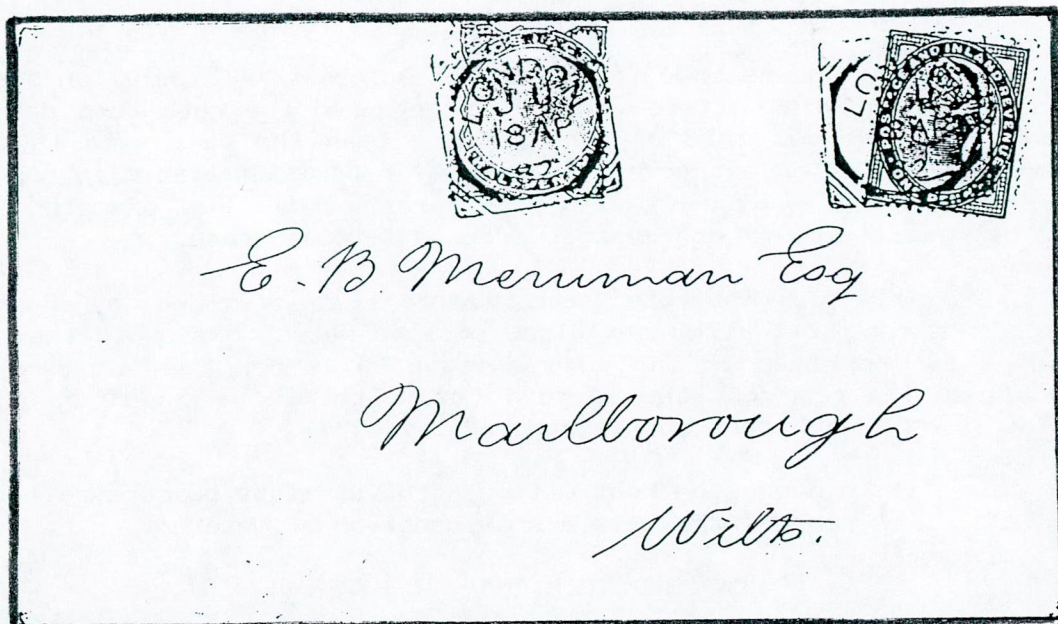 LONDON
18 AP
POSTAGE AND INLAND REVENUE
E. B. Merriman Esq
Marlborough
Wilts.